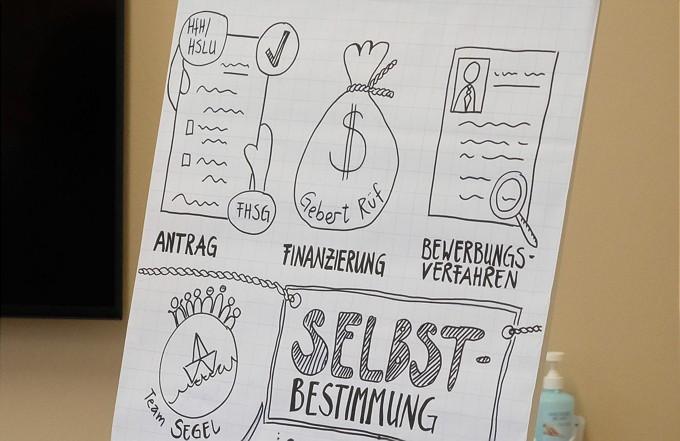 HfH/
HSLU
FHSG
$
Gebert Rüf
ANTRAG
FINANZIERUNG
BEWERBUNGS-
VERFAHREN
Team SEGEL
SELBST-
BESTIMMUNG